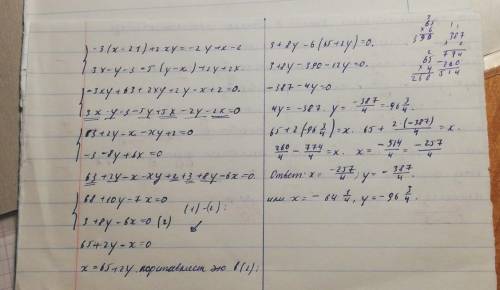 -3(x-21)+2xy=-2y+x-2
3x-y-3=5(y-x)+2y+2x
-3xy+63+2xy+2y-x+2=0
3x-y-3-5y+5x-2y-2x=0
63+2y-x-xy+2=0
-3-8y+6x=0
63+2y-x-xy+2+3+8y-6x=0
68+10y-7x=0
(1)-(2):
3+8y-6x=0 (2)
65+2y-x=0
x=65+2y подставляем это в (2):
3+8y-6(65+2y)=0.
3+8y-390-12y=0.
-387-4y=0.
4y=-387. y=-387/4=-96 3/4.
65+2(-96 3/4)=x. 65+2·(-387)/4=x.
260/4-774/4=x. x=-514/4=-257/4
Ответ: x=-257/4; y=-387/4.
или x=-64 1/4, y=-96 3/4.